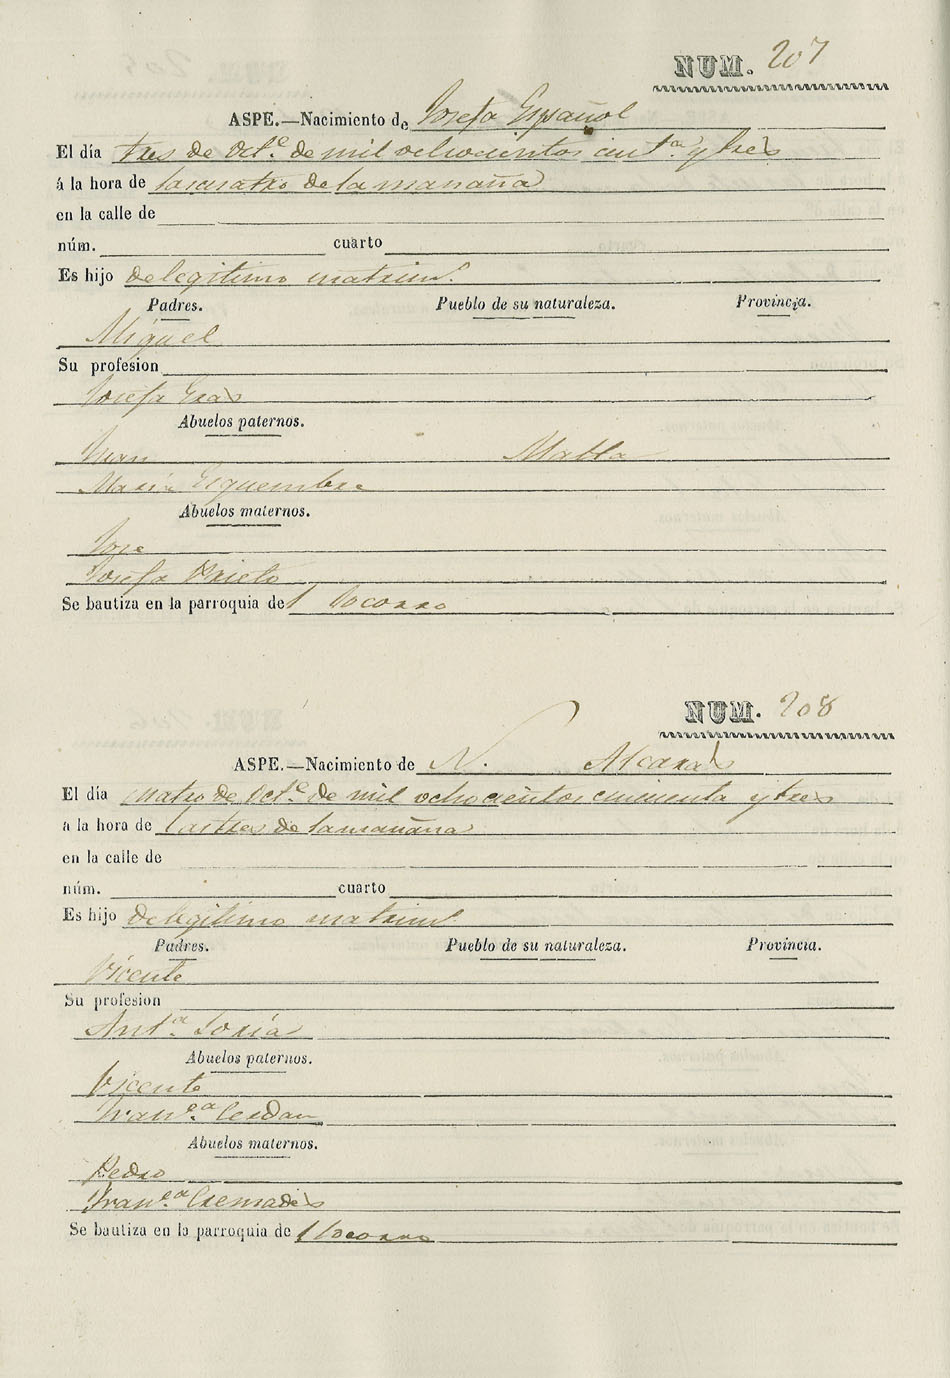 NUM. 207
ASPE.—Nacimiento de Josefa Español
El día tres de Oct.e de mil ochocientos cinc.ta y tres
á la hora de las cuatro de la mañana
en la calle de
núm. cuarto
Es hijo de legitimo matrim.o
Padres. Pueblo de su naturaleza. Provincia.
Miguel
Su profesion
Josefa Gras
Abuelos paternos.
Juan
Maria Esquembre
Abuelos maternos.
Jose
Josefa Prieto
Se bautiza en la parroquia del Socorro
NUM. 208
ASPE.—Nacimiento de N. Alcaras
El día cuatro de Oct.e de mil ochocientos cincuenta y tres
a la hora de las tres de la mañana
en la calle de
núm. cuarto
Es hijo de legitimo matrim.o
Padres. Pueblo de su naturaleza. Provincia.
Vicente
Su profesion
Ant.a Soria
Abuelos paternos.
Vicente
Fran.ca Cerdan
Abuelos maternos.
Pedro
Fran.ca Cremades
Se bautiza en la parroquia de l Socorro